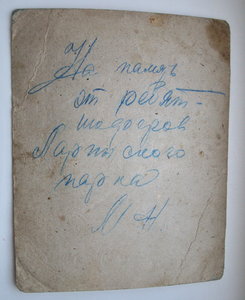 На память
от ребят-
шоферов
Ларинского
парка
М Н